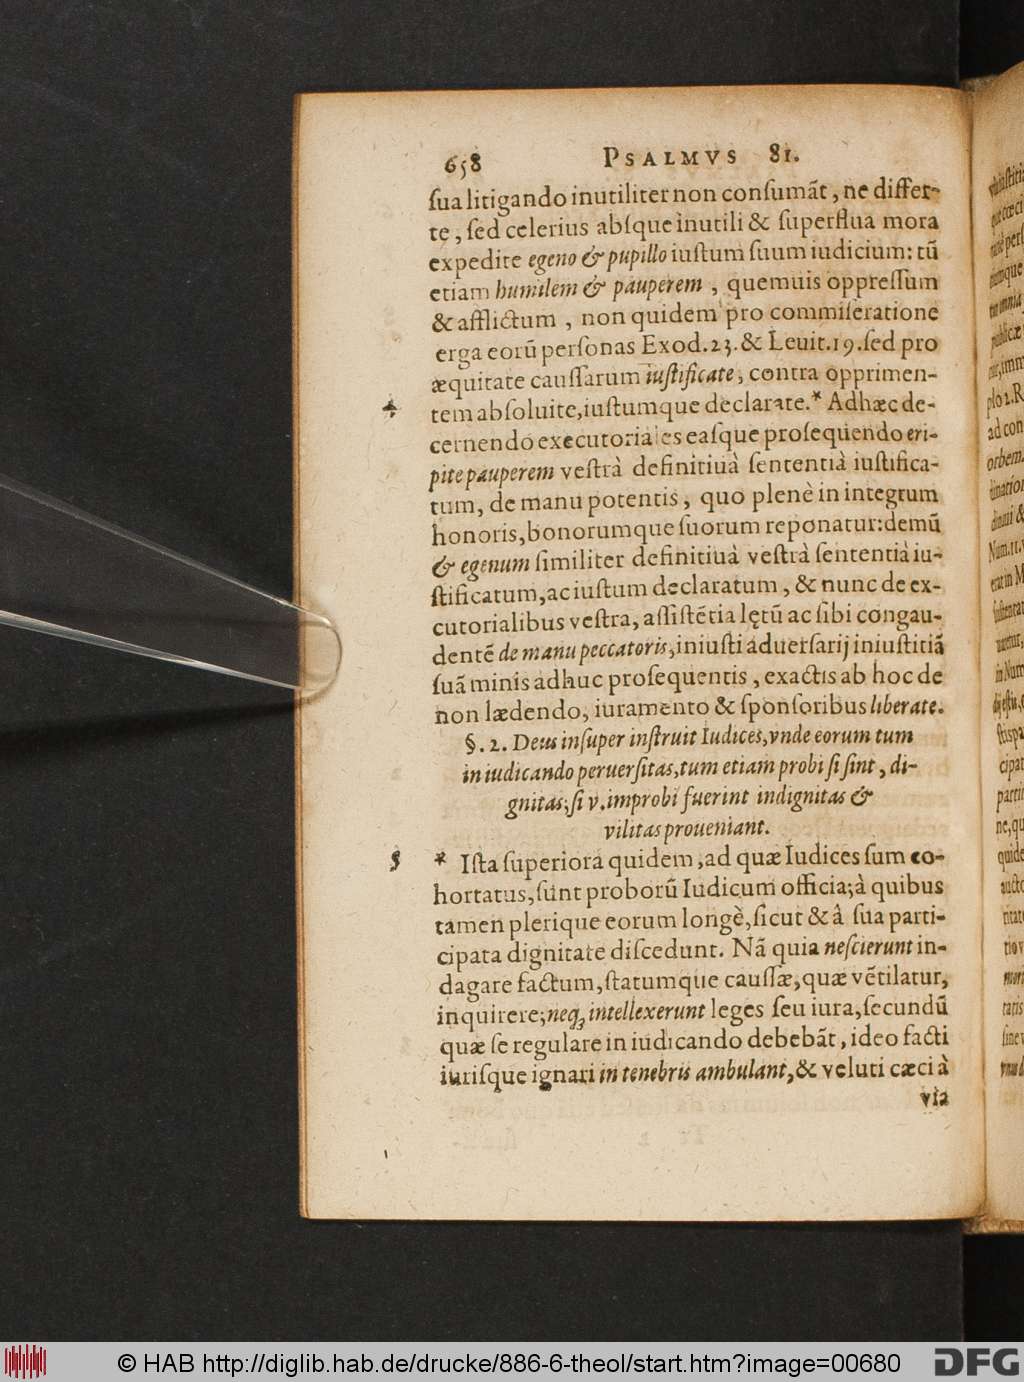 658 PSALMVS 81.
ſua litigando inutiliter non conſumāt, ne differ-
te, ſed celerius abſque inutili & ſuperflua mora
expedite egeno & pupillo iuſtum ſuum iudicium: tū
etiam humilem & pauperem, quemuis oppreſſum
& afflictum, non quidem pro commiſeratione
erga eorū perſonas Exod. 23. & Leuit. 19. ſed pro
æquitate cauſſarum iuſtificate, contra opprimen-
4 tem abſoluite, iuſtumque declarate.* Adhæc de-
cernendo executoriales eaſque proſequendo eri-
pite pauperem veſtrà definitiuà ſententià iuſtifica-
tum, de manu potentis, quo plenè in integrum
honoris, bonorumque ſuorum reponatur: demū
& egenum ſimiliter definitiuà veſtrà ſententià iu-
ſtificatum, ac iuſtum declaratum, & nunc de ex-
cutorialibus veſtra, aſſiſtētia lętū ac ſibi congau-
dentē de manu peccatoris, iniuſti aduerſarij iniuſtitiā
ſuā minis adhuc proſequentis, exactis ab hoc de
non lædendo, iuramento & ſponſoribus liberate.
§. 2. Deus inſuper inſtruit Iudices, vnde eorum tum
in iudicando peruerſitas, tum etiam probi ſi ſint, di-
gnitas; ſi v. improbi fuerint indignitas &
vilitas proueniant.
5 * Iſta ſuperiora quidem, ad quæ Iudices ſum co-
hortatus, ſunt proborū Iudicum officia; à quibus
tamen plerique eorum longè, ſicut & â ſua parti-
cipata dignitate diſcedunt. Nā quia neſcierunt in-
dagare factum, ſtatumque cauſſæ, quæ vētilatur,
inquirere; neq; intellexerunt leges ſeu iura, ſecundū
quæ ſe regulare in iudicando debebāt, ideo facti
iuriſque ignari in tenebris ambulant, & veluti cæci à
via
© HAB http://diglib.hab.de/drucke/886-6-theol/start.htm?image=00680
DFG